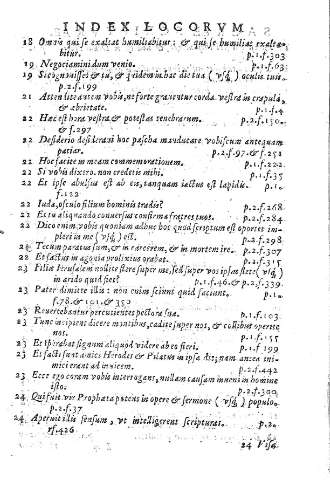 INDEX LOCORVM.
18 Omnis qui se exaltat humiliabitur: & qui se humiliat exalta-
bitur. p.1.f.303
19 Negociamini dum venio. p.1.f.63.
19 Si cognouisses & tu, & q̃ridem in hac die tua (vsq;) oculis tuis.
p.2.f.199
21 Attendite autem vobis, ne forte grauentur corda vestra in crapula,
& ebrietate. p.1.f.4
22 Hæc est hora vestra & potestas tenebrarum. p.2.f.150.
& f.297
22 Desiderio desideraui hoc pascha manducare vobiscum antequam
patiar. p.2.f.97. & f.251
22 Hoc facite in meam commemorationem. p.1.f.222.
22 Si vobis dixero. non creditis mihi. p.1.f.35
22 Et ipse abulsus est ab eis, tanquam iactus est lapidis. p.1.
f.122
22 Iuda, osculo filium hominis tradis? p.2.f.268.
22 Et tu aliquando conuersus confirma fratres tuos. p.2.f.284
22 Dico enim vobis quoniam adhuc hoc quod scriptum est oportet im-
pleri in me (vsq;) est. p.2.f.298
24 Tecum paratus sum, & in carcerem, & in mortem ire. p.2.f.307
22 Et factus in agonia prolixius orabat. p.2.f.315
23 Filiæ Ierusalem nolite flere super me, sed super vos ipsas flete (vsq;)
in arido quid fiet? p.1.f.46. & p.2.f.339.
23 Pater dimitte illis: non enim sciunt quid faciunt. p.1.
f.78. & 101. & 350
23 Reuertebantur percutientes pectora sua. p.1.f.103.
23 Tunc incipient dicere montibus, cadite super nos, & collibus operite
nos. p.1.f.155
23 Et sperabat signum aliquod videre ab eo fieri. p.1.f.199
23 Et facti sunt amici Herodes & Pilatus in ipsa die; nam antea ini-
mici erant ad inuicem. p.2.f.442
23 Ecce ego coram vobis interrogans, nullam causam inueni in homine
isto. p.2.f.300,
24 Qui fuit vir Propheta potens in opere & sermone (vsq;) populo.
p.2.f.37
24 Aperuit illis sensum, vt intelligerent scripturas. p.2.
f.426
24 Visa